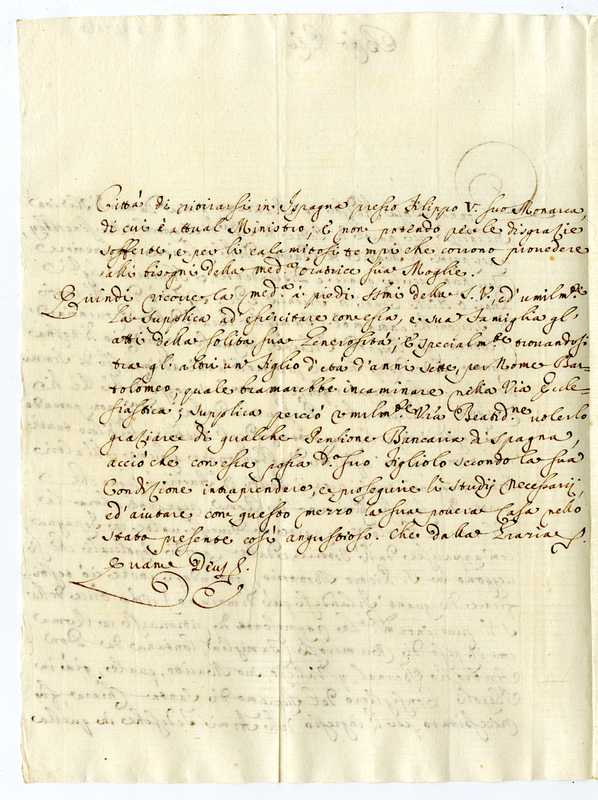 Città di ritirarsi in Ispagna presso Filippo V. suo Monarca,
di cui è attual Ministro; E non potendo per le disgrazie
sofferte, e per li calamitosi tempi che corrono provedere
alli bisogni della med.ª Oratrice sua Moglie.
Quindi ricorre la med.ª à piedi SSmi della S. V., ed umilm.te
La Supplica ad esercitare con essa, e sua Famiglia gl'
atti della solita sua Generosità; E specialm.te trovandosi
tra gl'altri un Figlio d'età d'anni sette, per Nome Bar-
tolomeo, quale bramarebbe incaminare nella Via Eccle-
siastica; Supplica perciò umilm.te V\a Beatid.ne volerlo
graziare di qualche Pensione Bancaria di Spagna,
acciò che con essa possa d.º suo Figliolo secondo la sua
Condizione intraprendere, e proseguire li Studij necessarij,
ed'aiutare con questo mezzo la sua povera Casa nello
stato presente così angustioso. Che dalla Grazia &.
Quam Deus &.